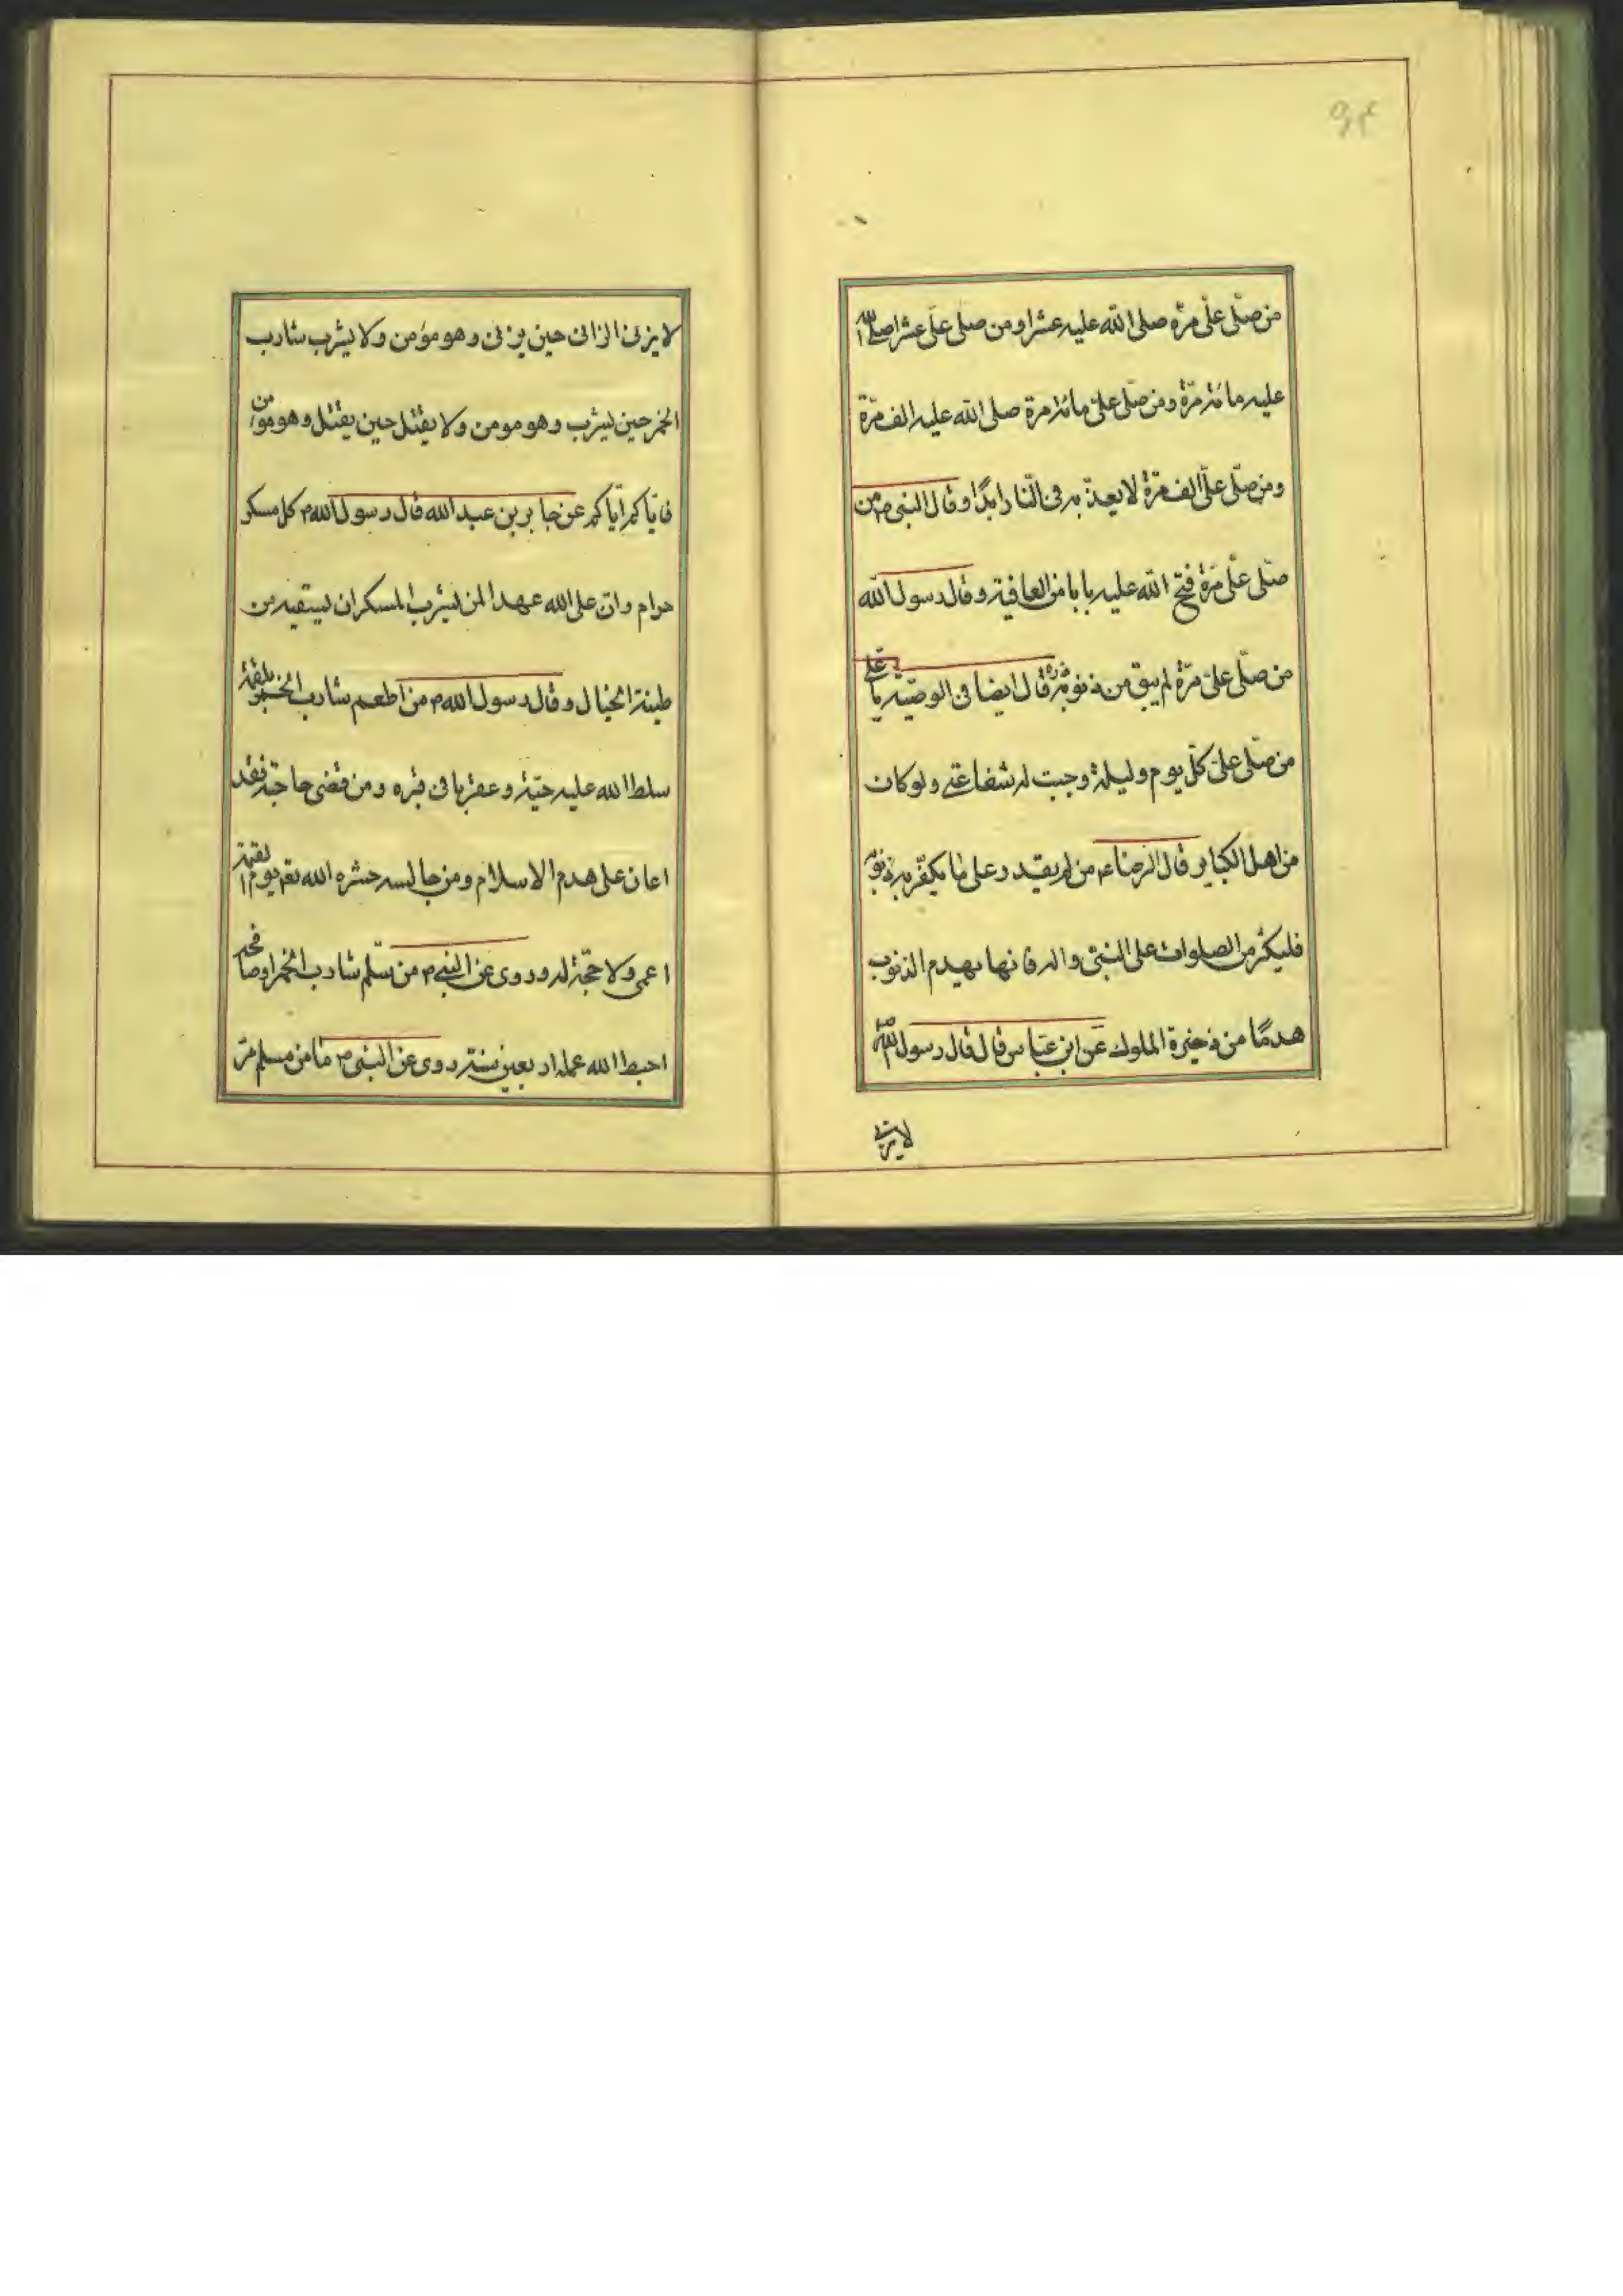 ۹۴
من صلّی علیّ مرّة صلی الله علیه عشرا و من صلی علیّ عشرا صلی الله
علیه مائة مرّة و من صلّی علیّ مائة مرة صلی الله علیه الف مرّة
و من صلّی علیّ الف مرّة لا یعذّبه فی النّار ابدًا و قال النبی ص من
صلّی علیّ مرّة فتح الله علیه بابا من العافیة و قال رسول الله
من صلّی علیّ مرّة لم یبق من ذنوبه ذرة قال ایضا فی الوصیّة یا علی
من صلّی علیّ کلّ یوم و لیلة وجبت له شفاعتی و لو کان
من اهل الکبایر قال الرضا ع من لم یقدر علی ما یکفّر به ذنوبه
فلیکثر من الصلوات علی النبیّ و اله فانها یهدم الذنوب
هدمًا من ذخیرة الملوک عن ابن عبّاس قال قال رسول الله ص
لا یزنی
لا یزنی الزانی حین یزنی و هو مؤمن و لا یشرب شارب
الخمر حین یشرب و هو مومن و لا یقتل حین یقتل و هو مومن
فایّاکم ایّاکم عن جابر بن عبد الله قال رسول الله ص کل مسکر
حرام و انّ علی الله عهدا لمن یشرب المسکر ان یسقیه من
طینة الخبال و قال رسول الله ص من اطعم شارب الخمر بلقمة
سلط الله علیه حیّة و عقربا فی قبره و من قضی حاجته فقد
اعان علی هدم الاسلام و من جالسه حشره الله تعم یوم القیمة
اعمی و لا حجّة له و روی عن النبی ص من سلّم شارب الخمر او صافحه
احبط الله عمله اربعین سنة روی عن النبی ص ما من مسلم مرّ